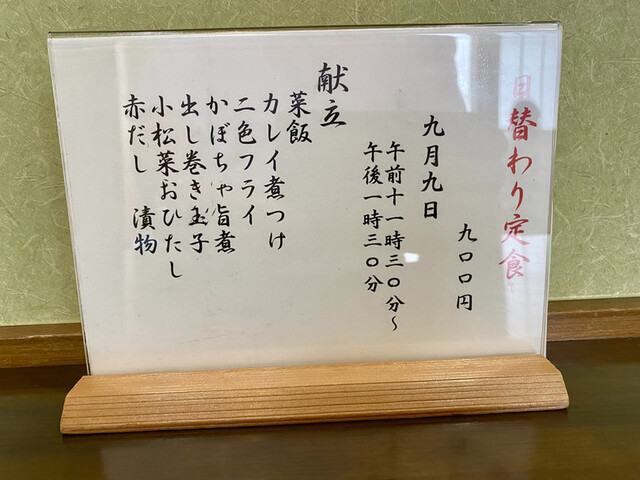 日替わり定食
九〇〇円
九月九日
午前十一時三〇分～
午後一時三〇分
献立
菜飯
カレイ煮つけ
二色フライ
かぼちゃ旨煮
出し巻き玉子
小松菜おひたし
赤だし 漬物